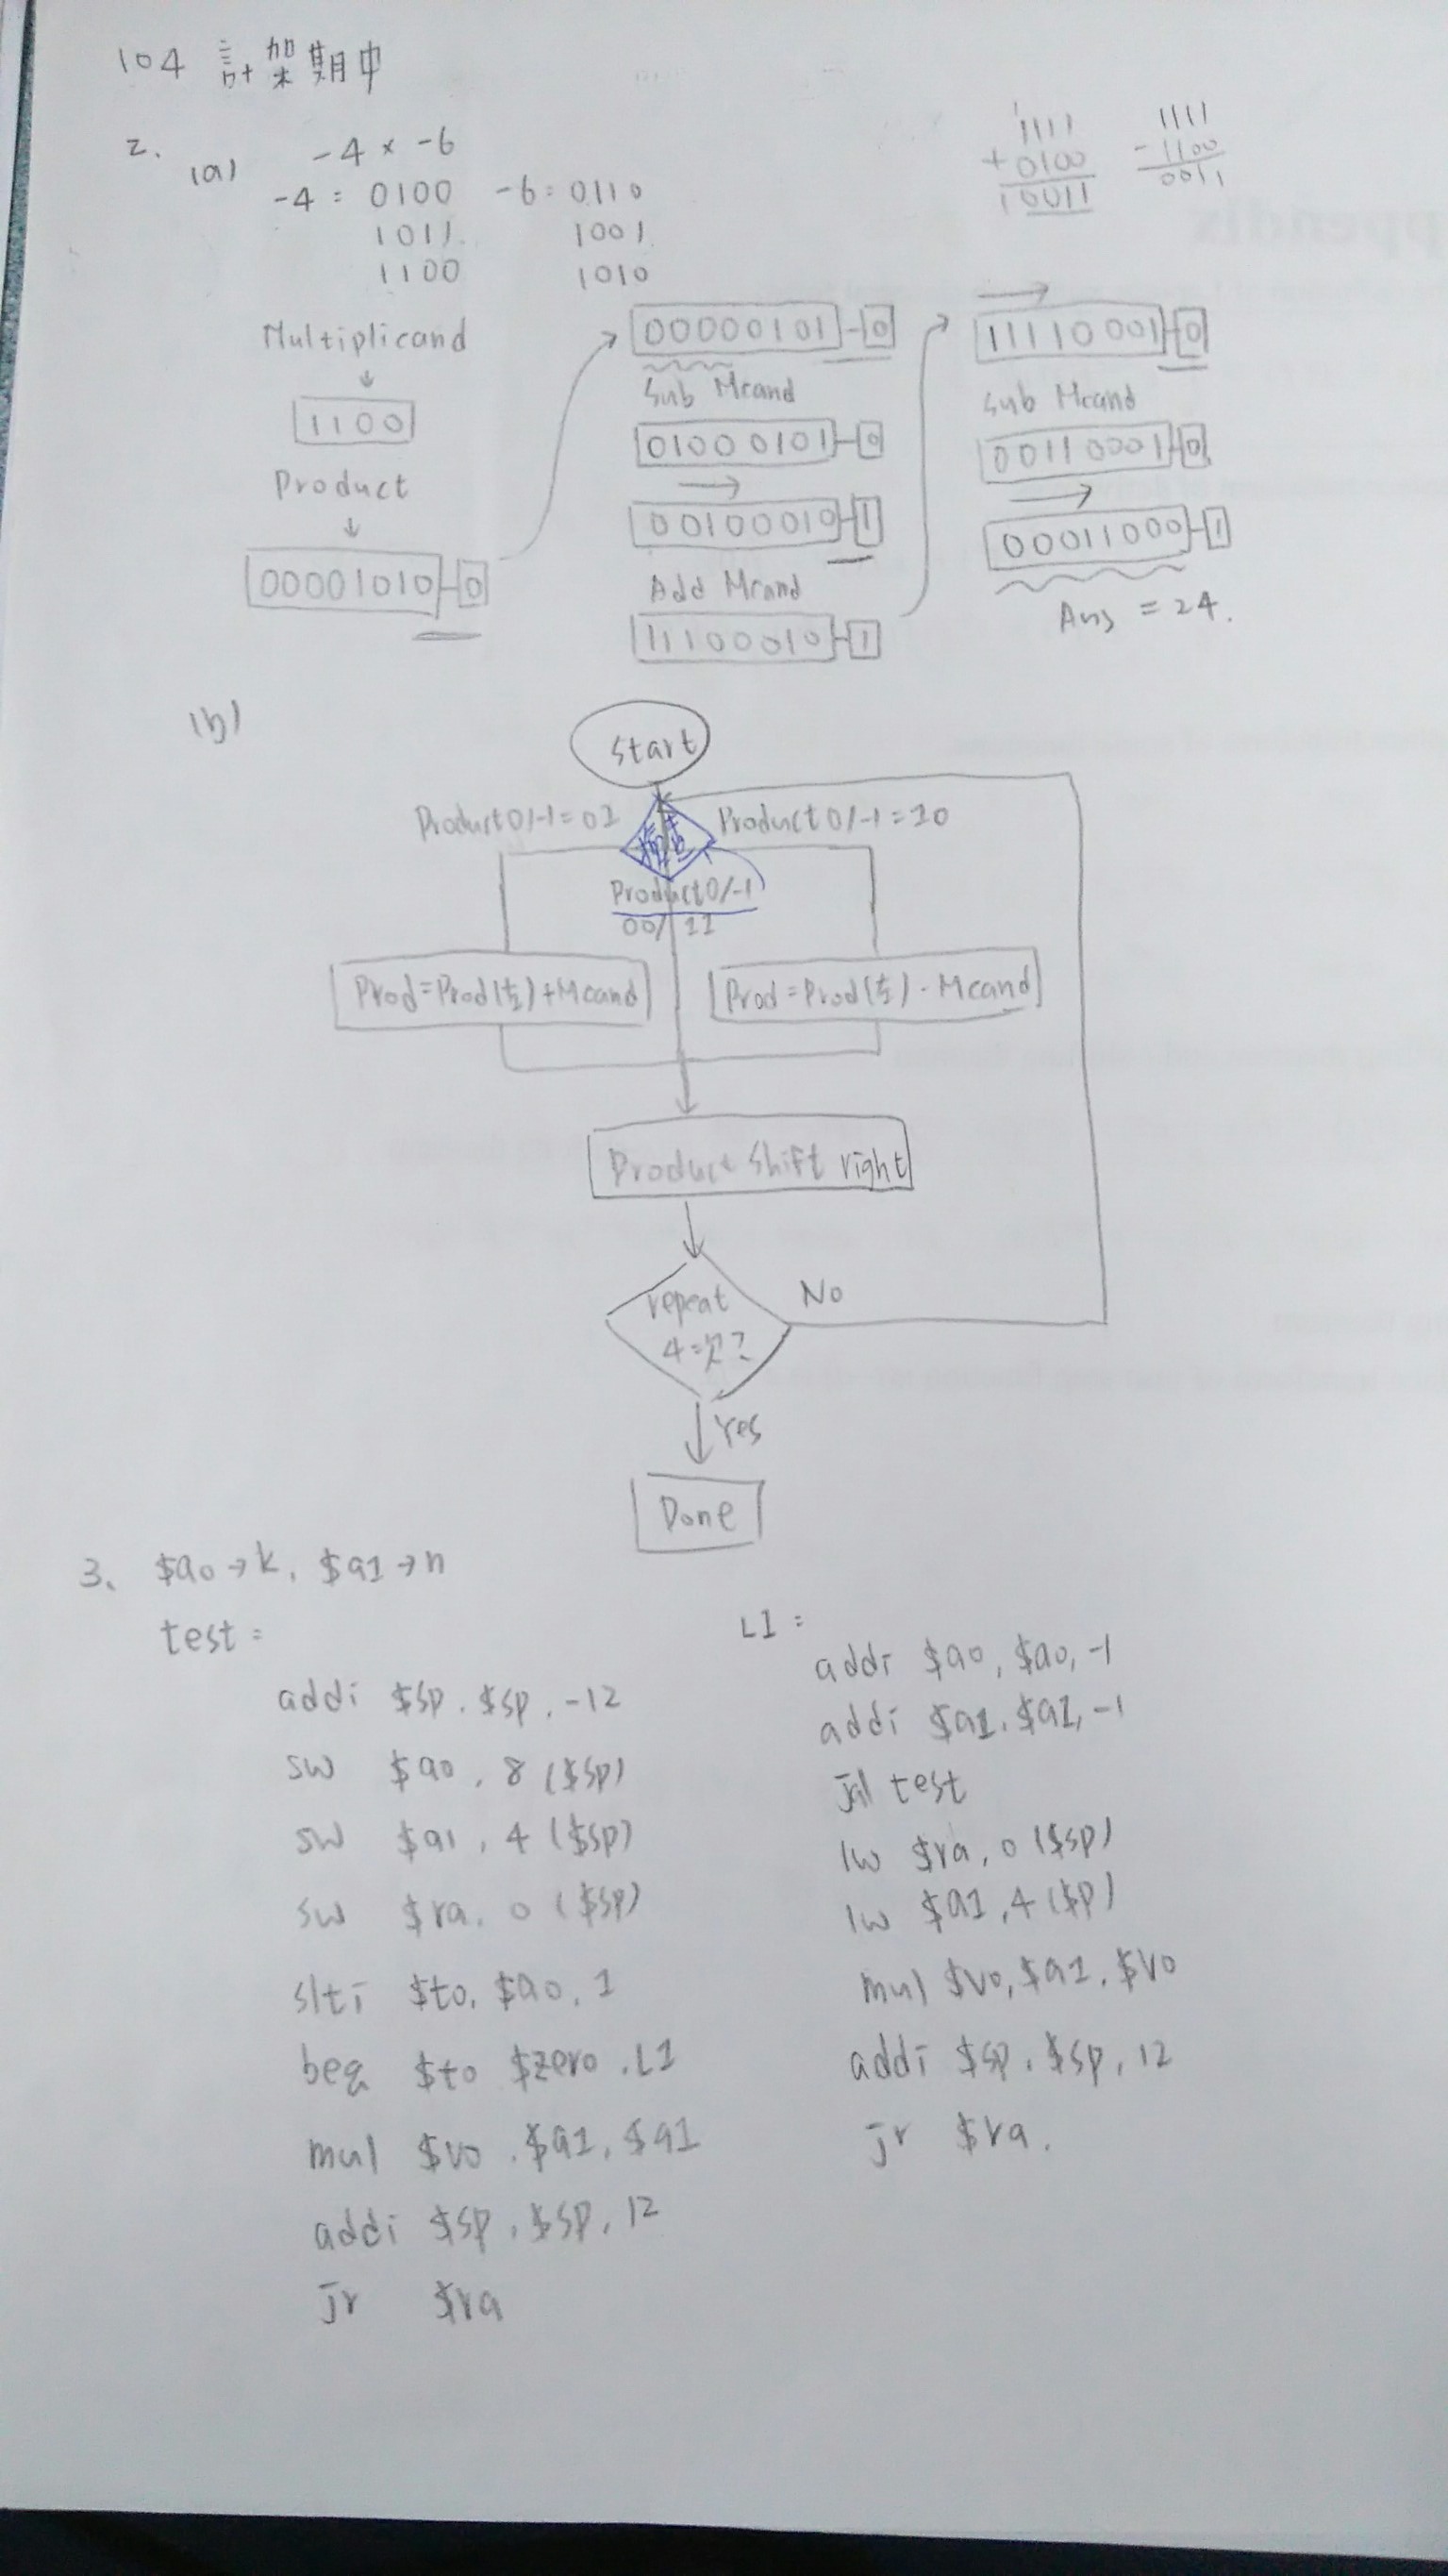 104 計架期中
2.
(a) -4 × -6
-4 = 0100 -6 = 0110
1011 1001
1100 1010
1111
+0100
10011
1111
-1100
0011
Multiplicand
1100
Product
00001010 0
00000101 0
Sub Mcand
01000101 0
00100010 1
Add Mcand
11100010 1
11110001 0
Sub Mcand
00110001 0
00011000 1
Ans = 24.
(b)
Start
Product0/-1=01
檢查
Product0/-1=10
Product0/-1
00/11
Prod=Prod(左)+Mcand
Prod=Prod(左)-Mcand
Product Shift right
repeat
4次?
No
Yes
Done
3、 $a0→k, $a1→n
test:
addi $sp, $sp, -12
sw $a0, 8($sp)
sw $a1, 4($sp)
sw $ra, 0($sp)
slti $t0, $a0, 1
beq $t0 $zero, L1
mul $v0, $a1, $a1
addi $sp, $sp, 12
jr $ra
L1:
addi $a0, $a0, -1
addi $a1, $a1, -1
jal test
lw $ra, 0($sp)
lw $a1, 4($p)
mul $v0, $a1, $v0
addi $sp, $sp, 12
jr $ra.